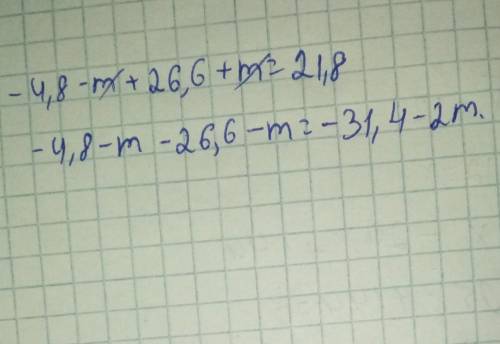 -4,8 - m + 26,6 + m = 21,8
-4,8 - m - 26,6 - m = -31,4 - 2m.